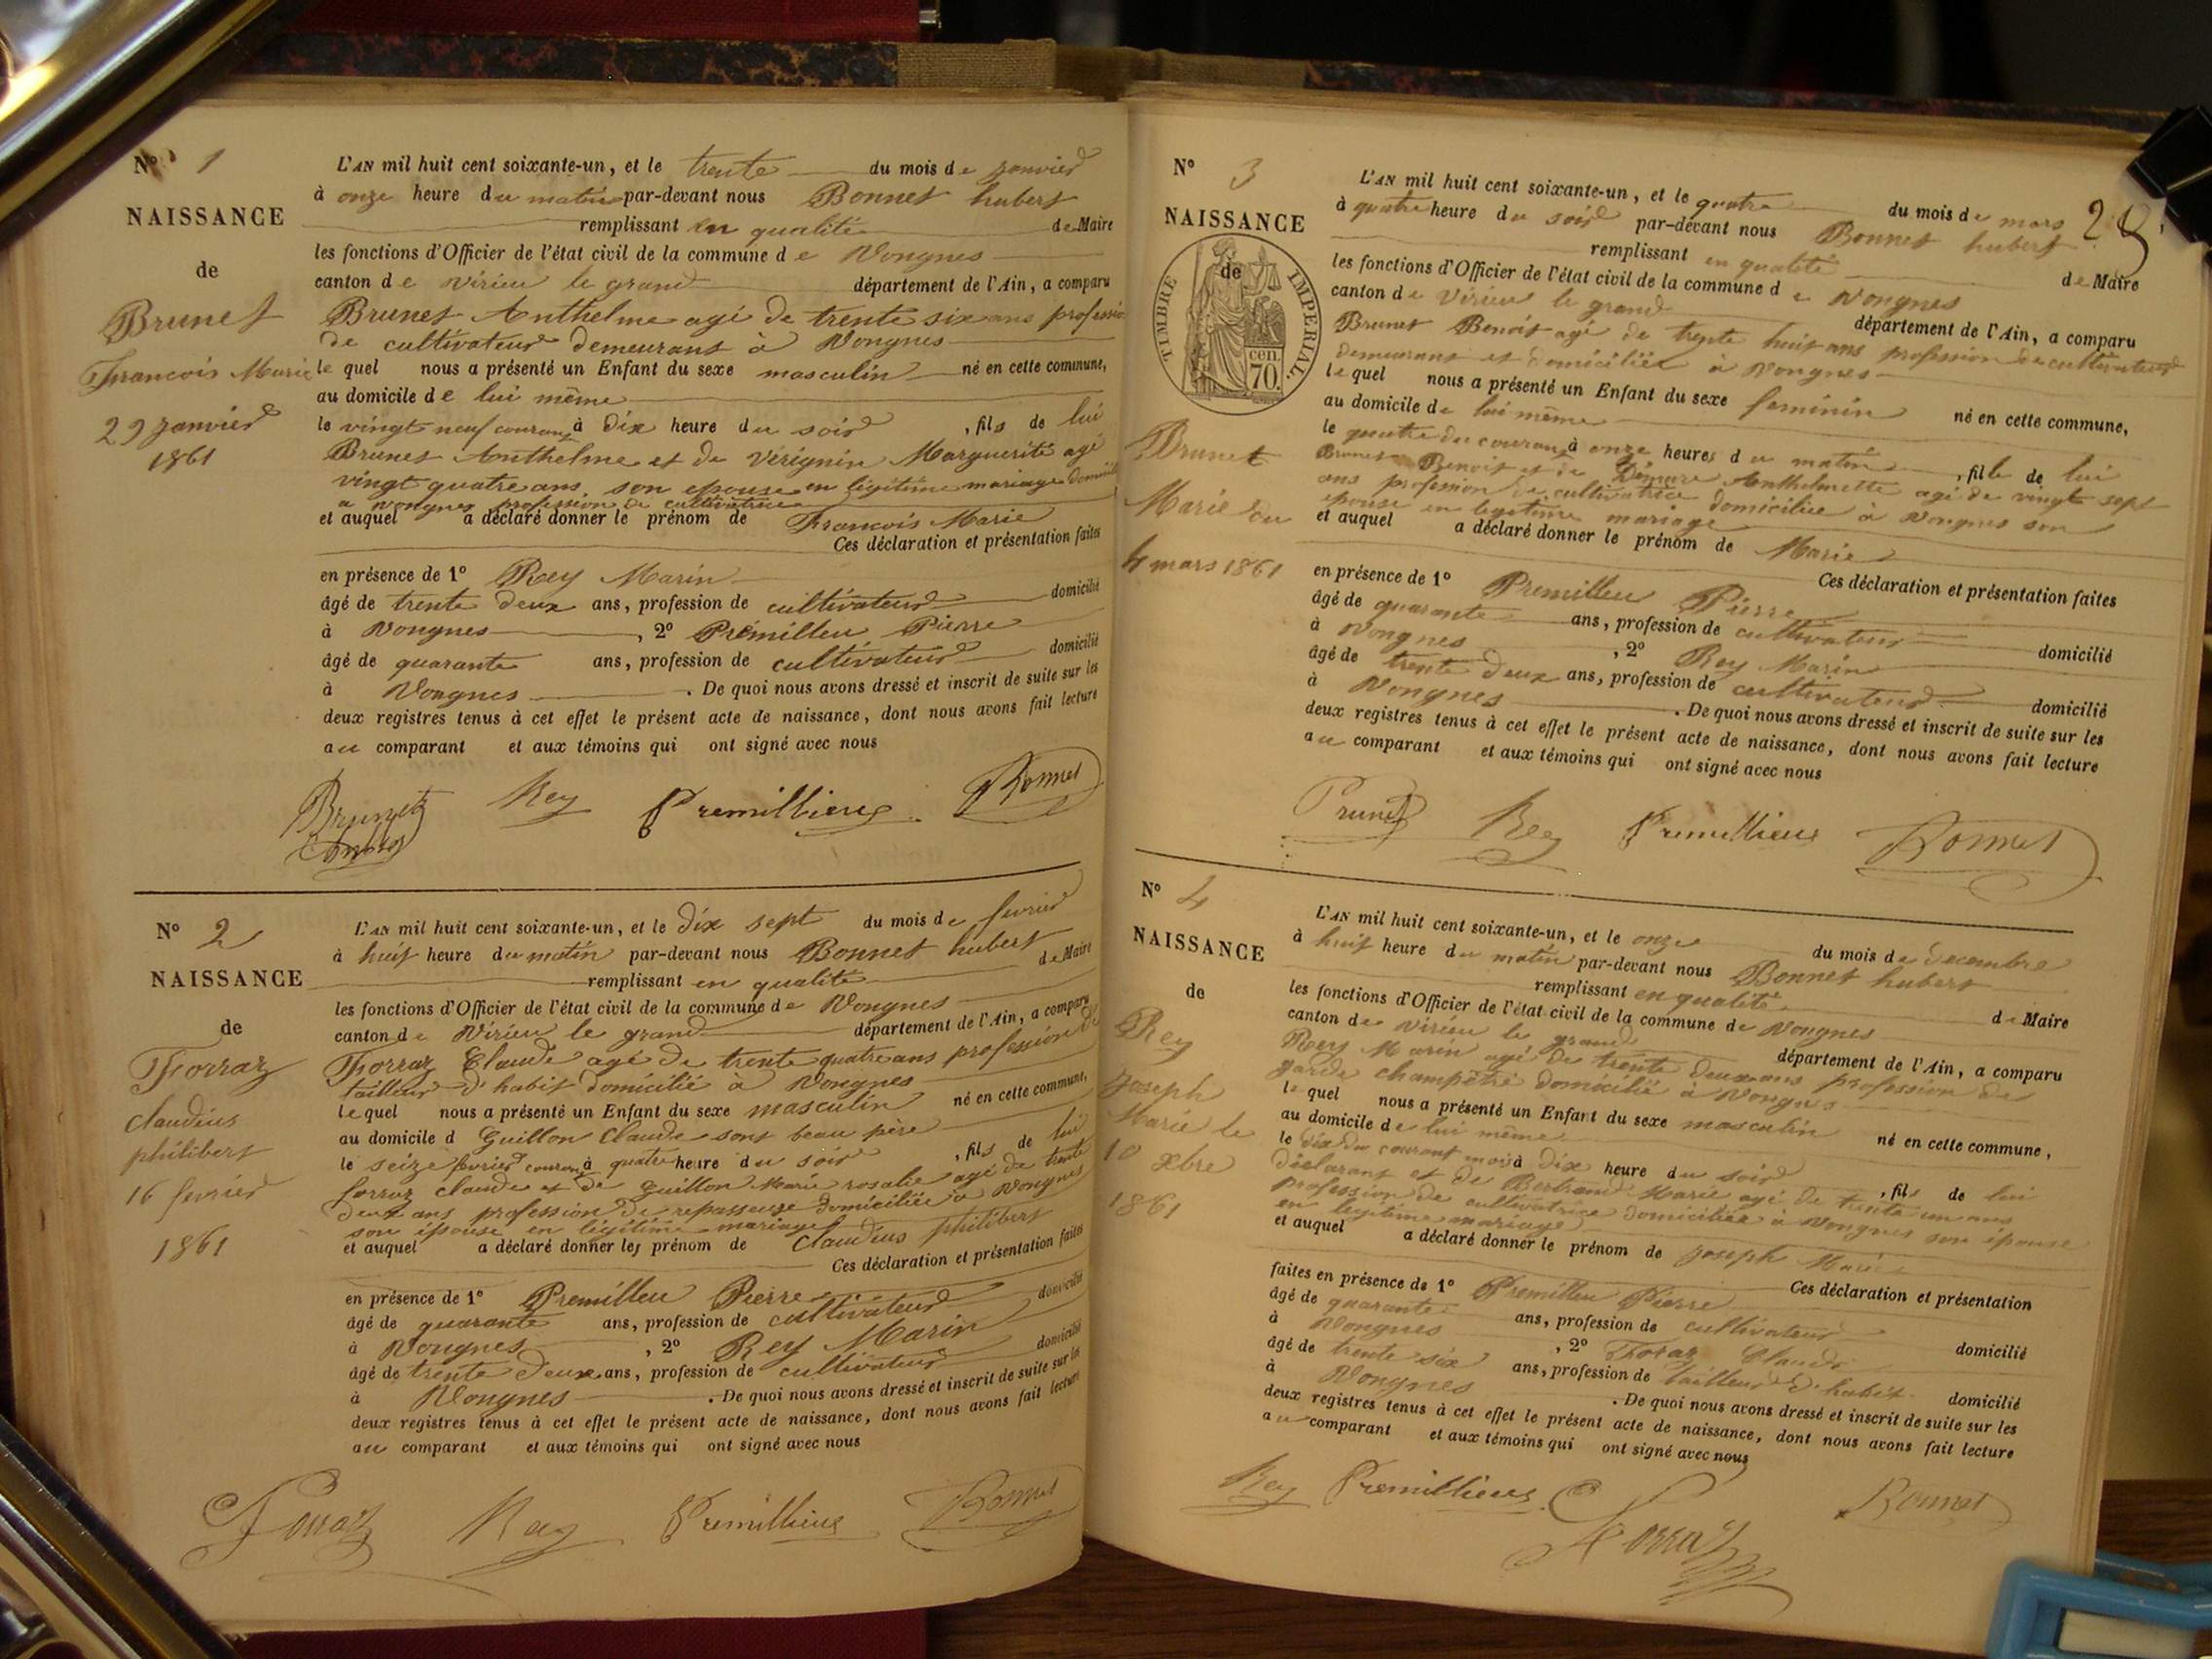 N° 1
NAISSANCE
de
Brunet
François Marie
29 janvier
1861
L'AN mil huit cent soixante-un, et le trente du mois de janvier
à onze heure du matin par-devant nous Bonnet hubert
remplissant en qualité de Maire
les fonctions d'Officier de l'état civil de la commune de Vongnes
canton de virieu le grand département de l'Ain, a comparu
Brunet Anthelme agé de trente six ans professio
de cultivateur demeurant à Vongnes
le quel nous a présenté un Enfant du sexe masculin né en cette commune,
au domicile de lui même
le vingt neuf courant à dix heure du soir , fils de lui
Brunet Anthelme et de Virignin Marguerite agé
vingt quatre ans son epouse en légitime mariage
a vongnes profession de cultivatrice
et auquel a déclaré donner le prénom de François Marie
Ces déclaration et présentation faites
en présence de 1° Rey Marin
âgé de trente deux ans, profession de cultivateur domicilié
à Vongnes , 2° Prémilleu Pierre
âgé de quarante ans, profession de cultivateur domicilié
à Vongnes . De quoi nous avons dressé et inscrit de suite sur les
deux registres tenus à cet effet le présent acte de naissance, dont nous avons fait lecture
au comparant et aux témoins qui ont signé avec nous
Brunet Rey Premillieux Bonnet
N° 2
NAISSANCE
de
Forraz
claudius
philibert
16 fevrier
1861
L'AN mil huit cent soixante-un, et le dix sept du mois de fevrier
à huit heure du matin par-devant nous Bonnet hubert
remplissant en qualité de Maire
les fonctions d'Officier de l'état civil de la commune de Vongnes
canton de Virieu le grand département de l'Ain, a comparu
Forraz Claude agé de trente quatre ans profession de
tailleur d'habit domicilié à Vongnes
le quel nous a présenté un Enfant du sexe masculin né en cette commune,
au domicile d Guillon Claude sont beau père
le seize fevrier courant à quatre heure du soir , fils de lui
forraz claude et de Guillon Marie rosalie agé de trente
deux ans profession de repasseuse domiciliée à Vongnes
son épouse en légitime mariage
et auquel a déclaré donner les prénom de Claudius philibert
Ces déclaration et présentation faites
en présence de 1° Premilleu Pierre
âgé de quarante ans, profession de cultivateur domicilié
à Vongnes , 2° Rey Marin
âgé de trente deux ans, profession de cultivateur domicilié
à Vongnes . De quoi nous avons dressé et inscrit de suite sur les
deux registres tenus à cet effet le présent acte de naissance, dont nous avons fait lecture
au comparant et aux témoins qui ont signé avec nous
Forraz Rey Premillieux Bonnet
N° 3
NAISSANCE
de
TIMBRE IMPERIAL
cen.
70.
Brunet
Marie du
4 mars 1861
L'AN mil huit cent soixante-un, et le quatre du mois de mars
à quatre heure du soir par-devant nous Bonnet hubert
remplissant en qualité de Maire
les fonctions d'Officier de l'état civil de la commune de Vongnes
canton de Virieu le grand département de l'Ain, a comparu
Brunet Benoit agé de trente huit ans profession de cultivateur
demeurant et domiciliée à Vongnes
le quel nous a présenté un Enfant du sexe feminin né en cette commune,
au domicile de lui même
le quatre du courant à onze heures du matin , fille de lui
Brunet Benoit et de Anthelmette agé de vingt sept
ans profession de cultivatrice domiciliée à Vongnes son
épouse en legitime mariage
et auquel a déclaré donner le prénom de Marie
Ces déclaration et présentation faites
en présence de 1° Premilleu Pierre
âgé de quarante ans, profession de cultivateur domicilié
à Vongnes , 2° Rey Marin
âgé de trente deux ans, profession de cultivateur domicilié
à Vongnes . De quoi nous avons dressé et inscrit de suite sur les
deux registres tenus à cet effet le présent acte de naissance, dont nous avons fait lecture
au comparant et aux témoins qui ont signé avec nous
Brunet Rey Premillieux Bonnet
N° 4
NAISSANCE
de
Rey
Joseph
Marie le
10 xbre
1861
L'AN mil huit cent soixante-un, et le onze du mois de decembre
à huit heure du matin par-devant nous Bonnet hubert
remplissant en qualité de Maire
les fonctions d'Officier de l'état civil de la commune de Vongnes
canton de virieu le grand département de l'Ain, a comparu
Rey Marin agé de trente deux ans profession de
garde champêtre domiciliée à Vongnes
le quel nous a présenté un Enfant du sexe masculin né en cette commune,
au domicile de lui même
le dix du courant mois à dix heure du soir , fils de lui
déclarant et de Bertrand Marie agé de trente un ans
profession de cultivatrice domiciliée à Vongnes son épouse
en legitime mariage
et auquel a déclaré donner le prénom de joseph Marie
Ces déclaration et présentation
faites en présence de 1° Premilleu Pierre
âgé de quarante ans, profession de cultivateur domicilié
à Vongnes , 2° Foraz Claude
âgé de trente six ans, profession de tailleur d'habit domicilié
à Vongnes . De quoi nous avons dressé et inscrit de suite sur les
deux registres tenus à cet effet le présent acte de naissance, dont nous avons fait lecture
au comparant et aux témoins qui ont signé avec nous
Rey Premillieux Bonnet
Forraz